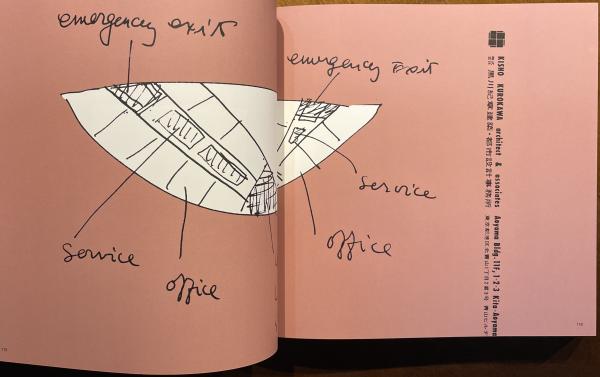 emergency exit
service
office
emergency exit
service
office
KISHO KUROKAWA architect & associates Aoyama Bldg. 11F, 1-2-3 Kita-Aoyama
黒川紀章建築・都市設計事務所 東京都港区北青山1丁目2番3号 青山ビルヂ